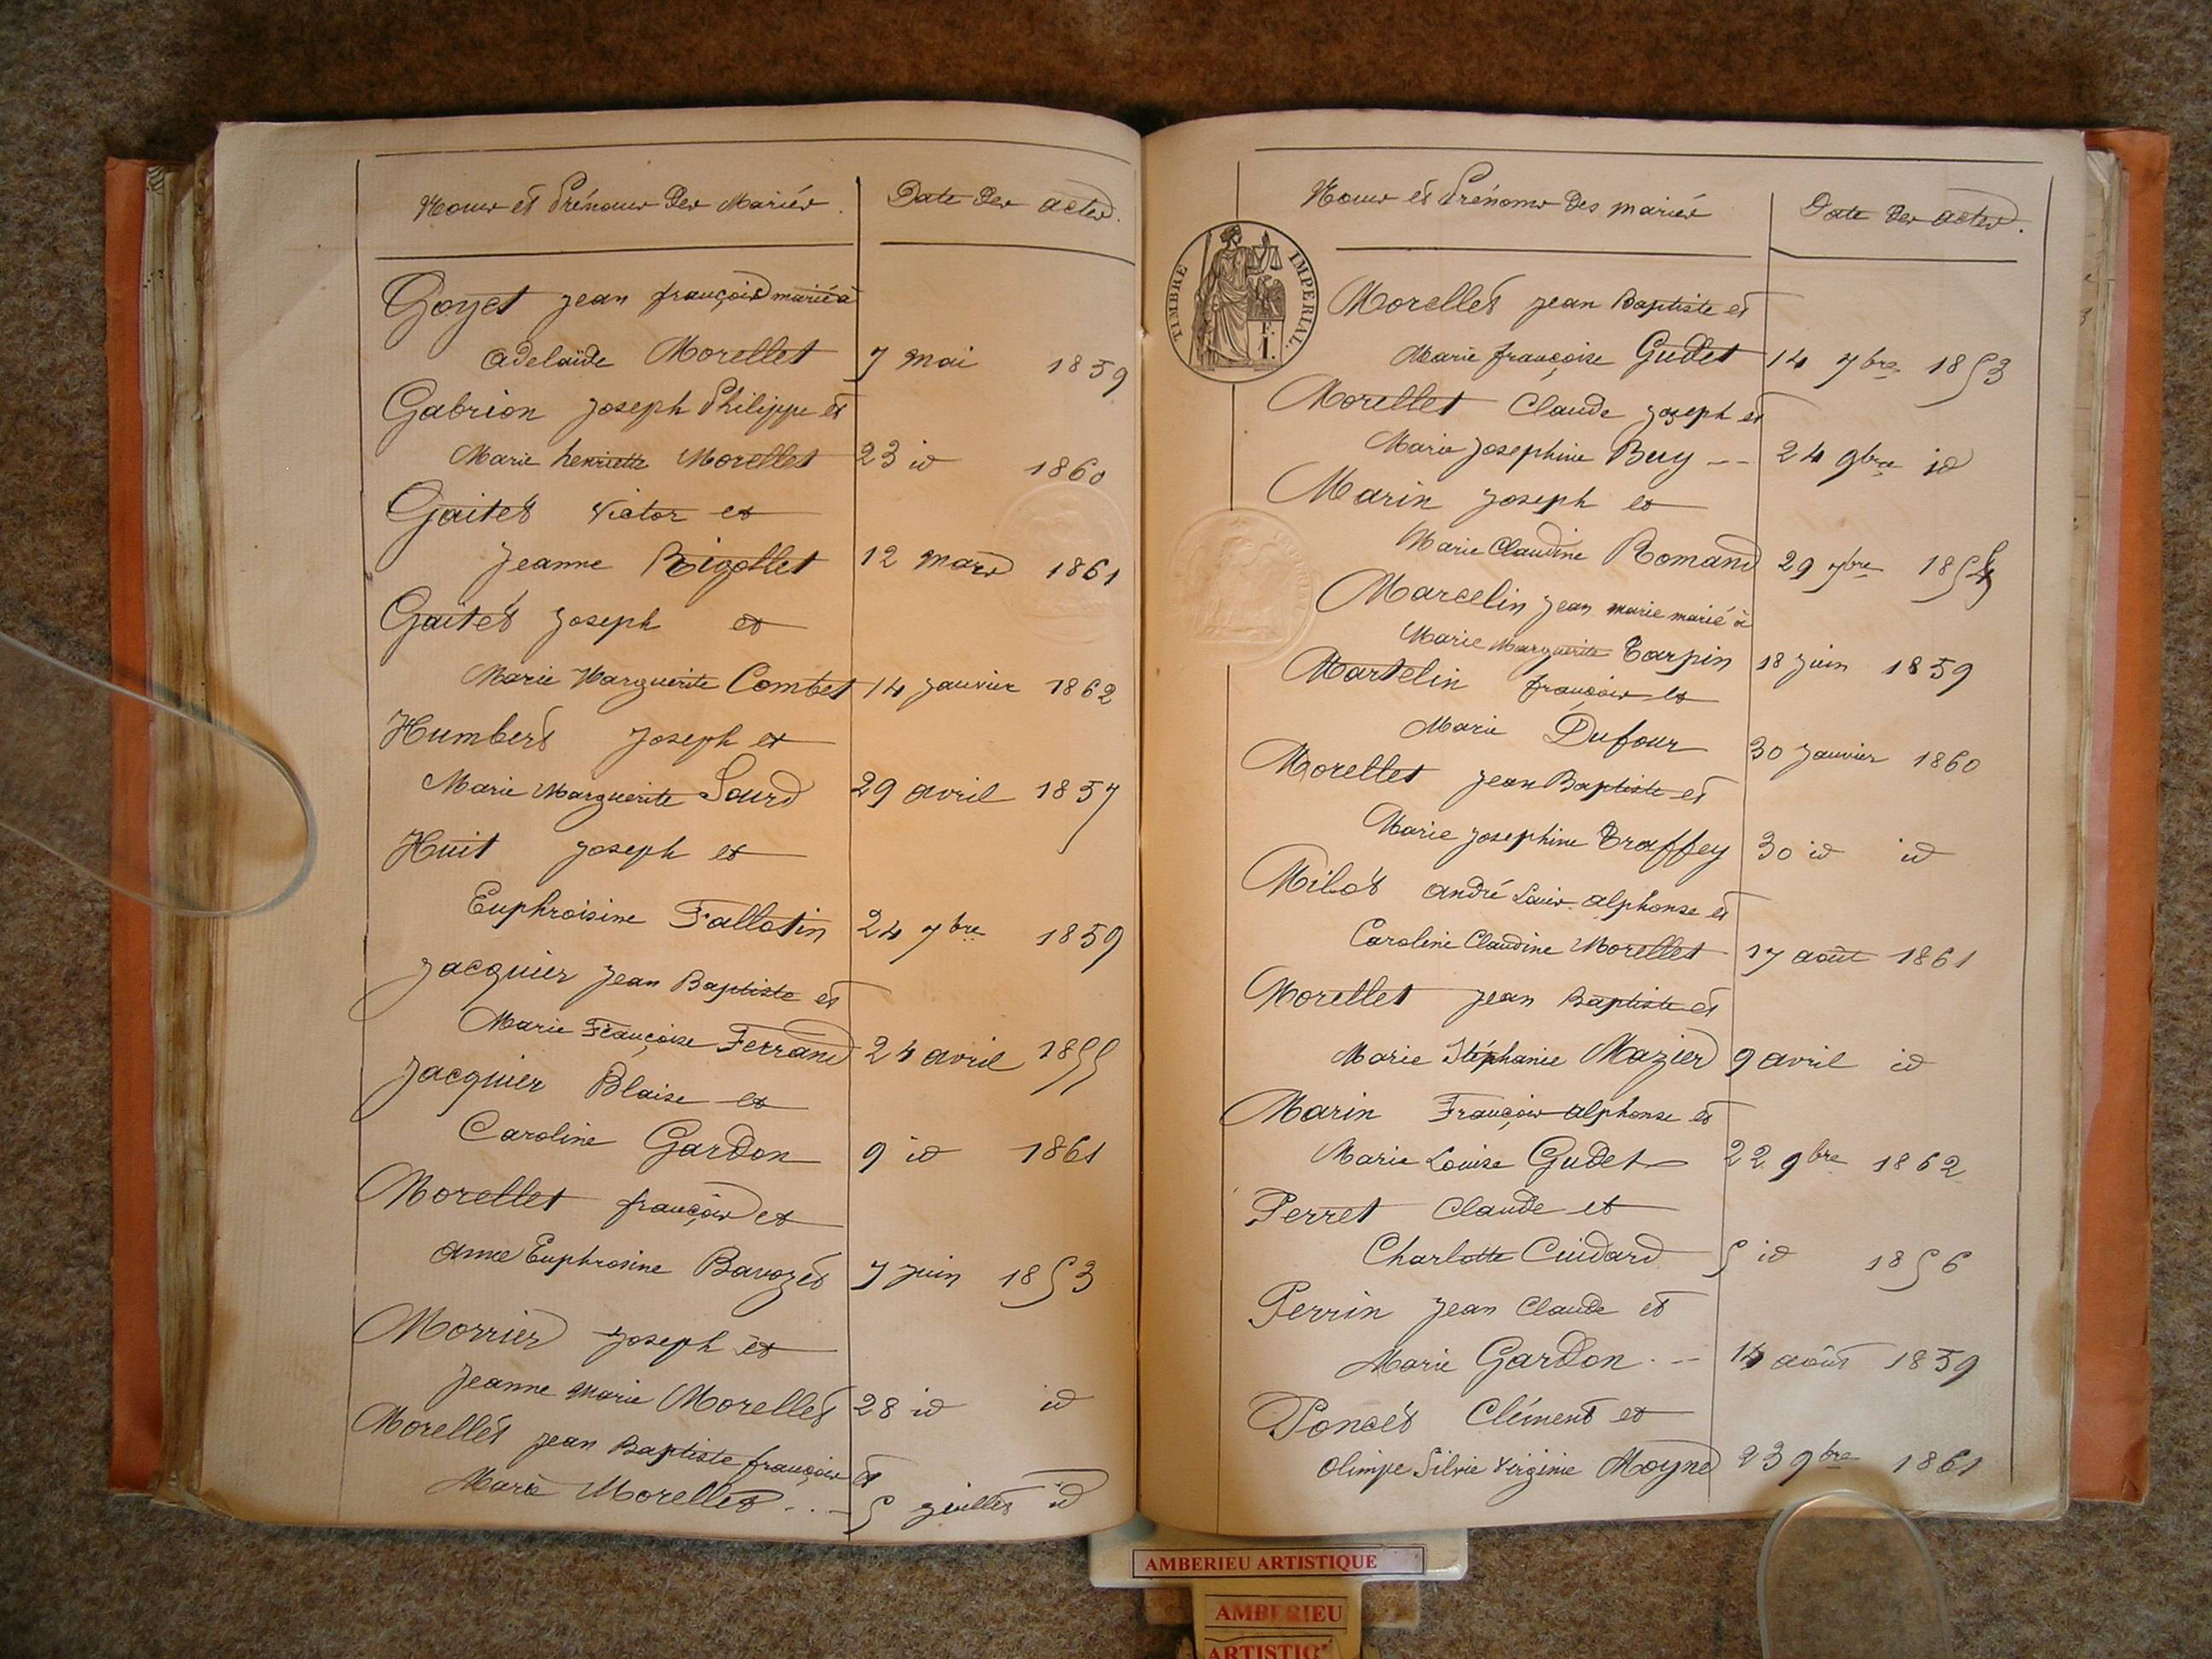 Noms et Prénoms des Mariés. Date des actes.
Goyet jean françois marié à
adelaïde Morellet 7 mai 1859
Gabrion joseph Philippe et
Marie henriette Morellet 23 id 1860
Gaitet Victor et
Jeanne Rigollet 12 mars 1861
Gaitet joseph et
Marie Marguerite Combet 14 janvier 1862
Humbert joseph et
Marie Marguerite Sourd 29 avril 1857
Huit joseph et
Euphroisine Fallatin 24 7bre 1859
Jacquier jean Baptiste et
Marie Françoise Ferrand 24 avril 1855
Jacquier Blaise et
Caroline Gardon 9 id 1861
Morellet françois et
anne Euphrosine Bavozet 7 juin 1853
Morrier joseph et
jeanne marie Morellet 28 id id
Morellet jean Baptiste françois et
Marie Morellet 5 juillet id
Noms et Prénoms des mariés Date des actes.
TIMBRE IMPERIAL.
F.
I.
Morellet jean Baptiste et
Marie françoise Gudet 14 7bre 1853
Morellet Claude joseph et
Marie josephine Buy -- 24 9bre id
Marin joseph et
Marie Claudine Romand 29 7bre 1854
Marcelin jean marie marié à
Marie Marguerite Tarpin 18 juin 1859
Martelin françois et
Marie Dufour 30 janvier 1860
Morellet jean Baptiste et
Marie josephine Traffey 30 id id
Milot andré Louis alphonse et
Caroline Claudine Morellet 17 août 1861
Morellet jean Baptiste et
Marie Stéphanie Mazier 9 avril id
Marin François alphonse et
Marie Louise Gudet 22 9bre 1862
Perret Claude et
Charlotte Cuidard 5 id 1856
Perrin jean Claude et
Marie Gardon . -- 14 août 1859
Poncet Clément et
Olimpe Silvie Virginie Moyne 23 9bre 1861
AMBERIEU ARTISTIQUE
AMBERIEU
ARTISTIQ